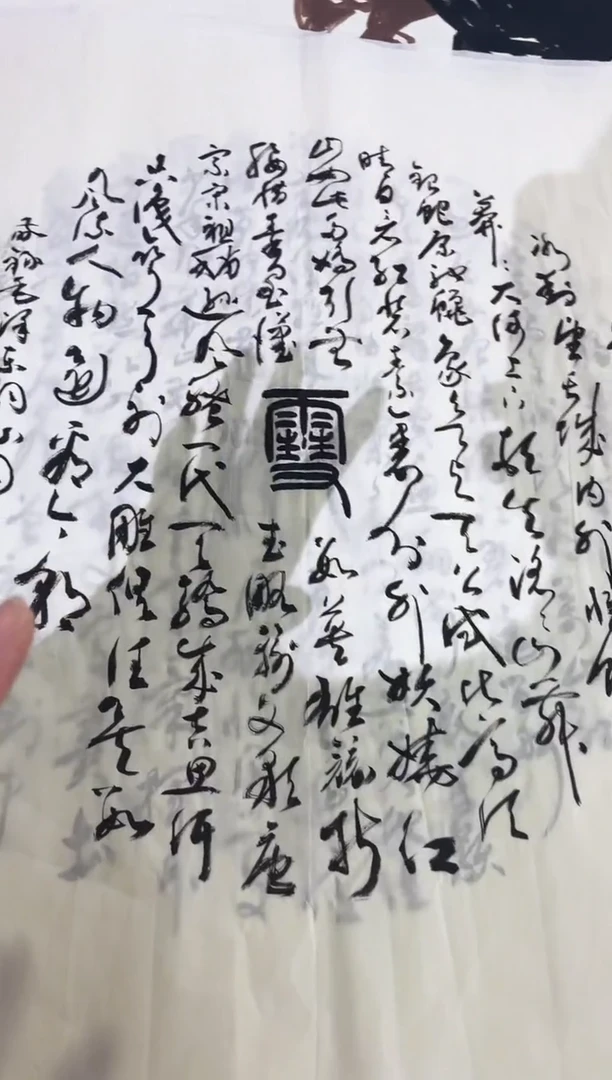 冰封望长城内外惟余
莽〻大河上下顿失滔〻山舞
银蛇原驰蜡象欲与天公试比高须
晴日看红装素裹分外妖娆江
山如此多娇引无数英雄竞折
腰惜秦皇汉武略输文采唐
雪
宗宋祖稍逊风骚一代天骄成吉思汗
只识弯弓射大雕俱往矣数
风流人物还看今朝
毛泽东词